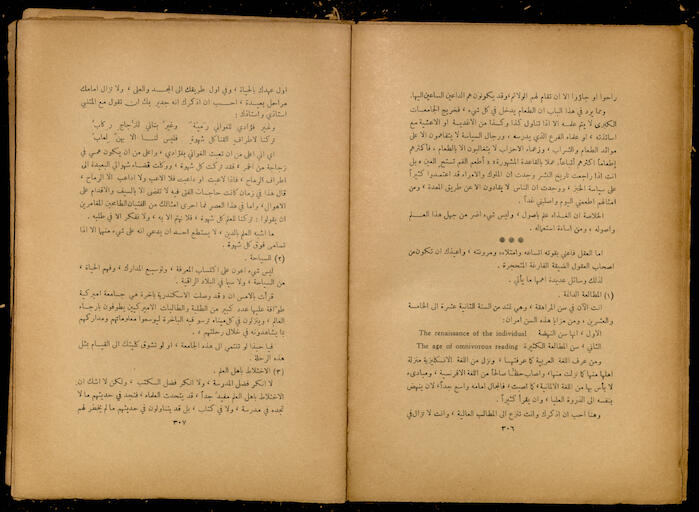 راحوا او جاؤوا الا ان تقام لهم الولائم، وقد يكونون هم الداعين الساعين اليها.
ومما يرد في هذا الباب ان الطعام يدخل في كل شيء، فخريج الجامعات
الكبرى لا يتم علمه الا اذا تناول كذا وكذا من الاغذية او الاعشية مع
اساتذته، او علماء الفرع الذي يدرسه، ورجال السياسة لا يتفاهمون الا على
موائد الطعام والشراب، وزعماء الاحزاب لا يتغالبون الا بالطعام، فأكثرهم
إطعاماً اكثرهم أتباعاً، عملا بالقاعدة المشهورة، اطعم الفم تستحي العين، بل
انت اذا راجعت تاريخ البشر وجدت ان الملوك والامراء قد اعتمدوا كثيراً
على سياسة الخبز، ووجدت ان الناس لا يقادون الا عن طريق المعدة، ومن
امثالهم اطعمني اليوم واصلبني غداً.
الخلاصة ان الغذاء علم بأصول، وليس شيء اضر من جهل هذا العلم
واصوله، ومن اساءة استعماله.
***
اما العقل فأعني بقوته اتساعه وامتلاءه ومرونته، واعيذك ان تكون من
اصحاب العقول الضيقة الفارغة المتحجرة.
لذلك وسائل عديدة اهمها ما يأتي.
(١) المطالعة الدائمة.
انت الآن في سن المراهقة، وهي تمتد من السنة الثانية عشرة الى الخامسة
والعشرين، ومن مزايا هذه السن امران:
الاول، انها سن النهضة The renaissance of the individual
الثاني، سن المطالعة الكثيرة The age of omnivorous reading
ومن عرف اللغة العربية كما عرفتها، ونزل من اللغة الانكليزية منزلة
اهلها منها كما نزلت منها، واصاب حظاً صالحاً من اللغة الافرنسية، ومبادىء
لا بأس بها من اللغة الالمانية، كما اصبت، فالمجال امامه واسع جداً، لان ينهض
بنفسه الى الذروة العليا، وان يقرأ كثيراً.
وهنا احب ان اذكرك وانت تنزع الى المطالب العالية، وانت لا تزال في
٣٠٦
اول عهدك بالحياة، وفي اول طريقك الى المجد والعلى، ولا تزال امامك
مراحل بعيدة، احب ان اذكرك انه جدير بك ان تقول مع المتنبي
استاذي واستاذك:
وغير فؤادي للغواني رمية وغير بناني للزجاج ركاب
تركنا لاطراف القنا كل شهوة فليس لنا الا بهن لعاب
اي اني اعلى من ان تعبث الغواني بفؤادي، واعلى من ان يكون همي في
زجاجة من الخمر، فقد تركت كل شهوة، ووكلت قضاء شهواتي البعيدة الى
اطراف الرماح، فاذا لاعبت او داعبت فلا الاعب ولا اداعب الا الرماح،
قال هذا في زمان كانت حاجات الفتى فيه لا تقضى الا بالسيف والاقدام على
الاهوال، واما في هذا العصر فما احرى امثالك من الفتيان الطامحين المغامرين
ان يقولوا: تركنا للعلم كل شهوة، فلا نهتم الا به، ولا نفكر الا في طلبه.
ما اشبه العلم بالدين، لا يستطيع احد ان يدعي انه على شيء منهما الا اذا
تسامى فوق كل شهوة.
(٢) السياحة.
ليس شيء اعون على اكتساب المعرفة، وتوسيع المدارك، وفهم الحياة،
من السياحة، ولا سيما في البلاد الراقية.
قرأت بالامس ان قد وصلت الاسكندرية باخرة هي جامعة اميركية
طوافة عليها عدد كبير من الطلبة والطالبات الاميركيين يطوفون بارجاء
العالم، وينزلون في كل ميناء ترسو فيه الباخرة ليوسعوا معلوماتهم ومداركهم
بما يشاهدونه في خلال رحلتهم.
فيا حبذا لو تنتمي الى هذه الجامعة، او لو تشوق كليتك الى القيام بمثل
هذه الرحلة.
(٣) الاختلاط باهل العلم.
لا انكر فضل المدرسة، ولا انكر فضل الكتب، ولكن لا اشك ان
الاختلاط باهل العلم مفيد جداً، قد يتحدث العلماء، فتجد في حديثهم ما لا
تجده في مدرسة، ولا في كتاب، بل قد يتناولون في حديثهم ما لم يخطر لهم
٣٠٧